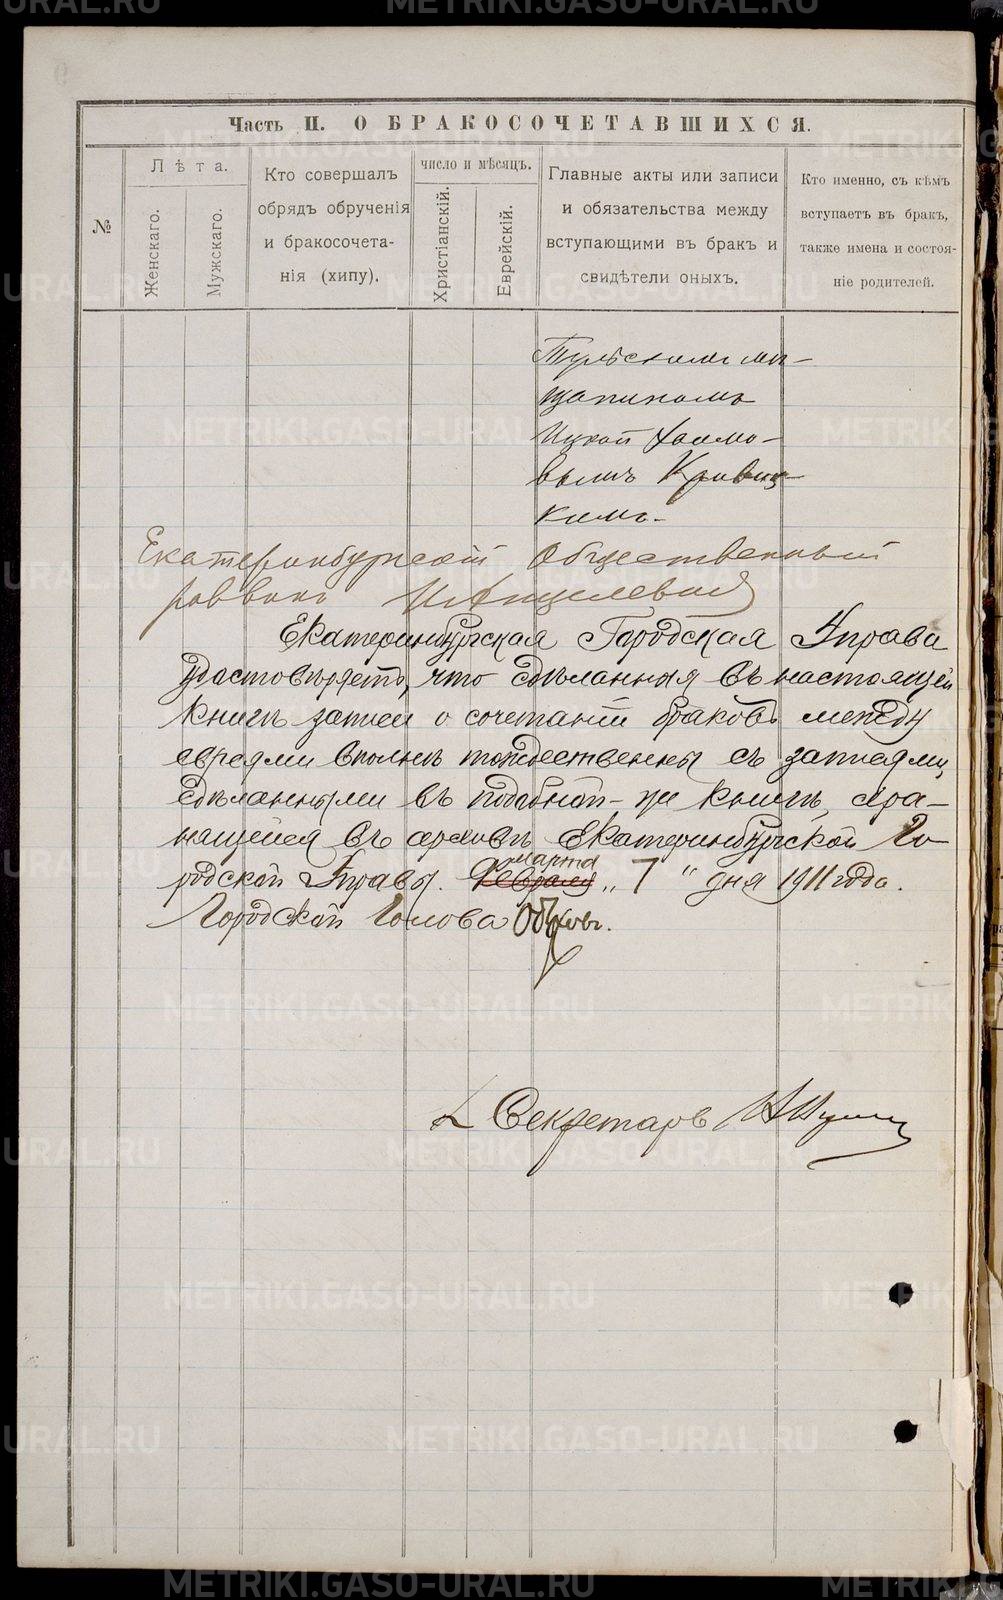 Часть II. О БРАКОСОЧЕТАВШИХСЯ.
№
Лѣта.
Женскаго.
Мужскаго.
Кто совершалъ
обрядъ обрученія
и бракосочета-
нія (хипу).
число и мѣсяцъ.
Христіанскій.
Еврейскій.
Главные акты или записи
и обязательства между
вступающими въ бракъ и
свидѣтели оныхъ.
Кто именно, съ кѣмъ
вступаетъ въ бракъ,
также имена и состоя-
ніе родителей.
мѣ-
щаниномъ
Ицкой Хаимо-
вымъ Кривиц-
кимъ.
Екатеринбургскій Общественный
раввинъ
Екатеринбургская Городская Управа
удостовѣряетъ, что сдѣланныя въ настоящей
книгѣ записи о сочетаніи браковъ между
евреями вполнѣ тождественны съ записями,
сдѣланными въ подобной-же книгѣ, хра-
нящейся въ архивѣ Екатеринбургской Го-
родской Управы. Февраля марта „7" дня 1911 года.
Городской Голова Обуховъ.
Секретарь
METRIKI.GASO-URAL.RU